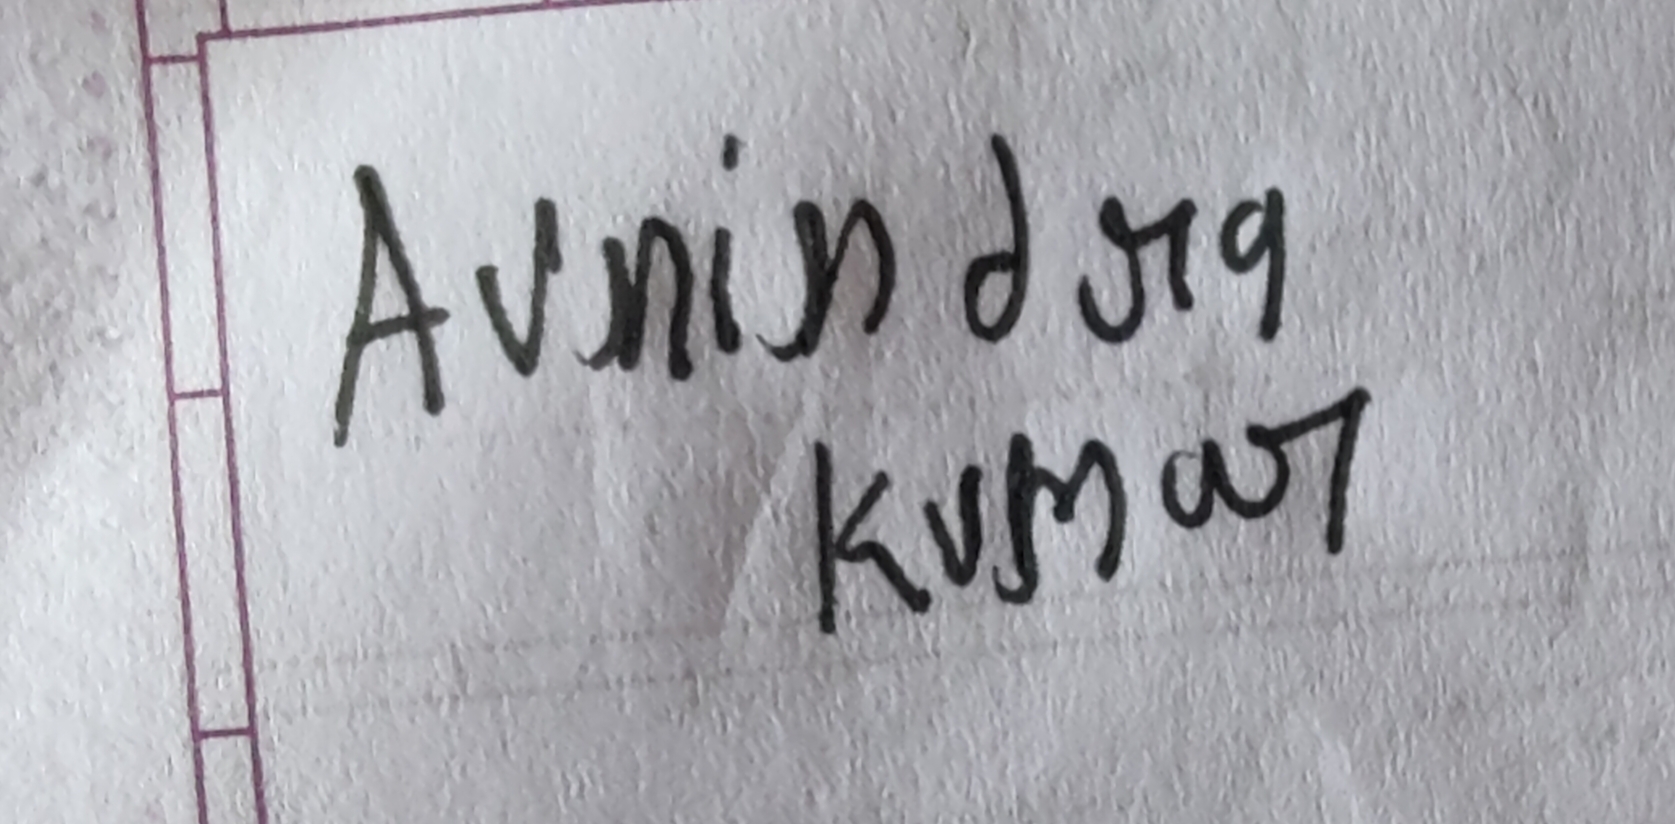 Avnindra
Kumar